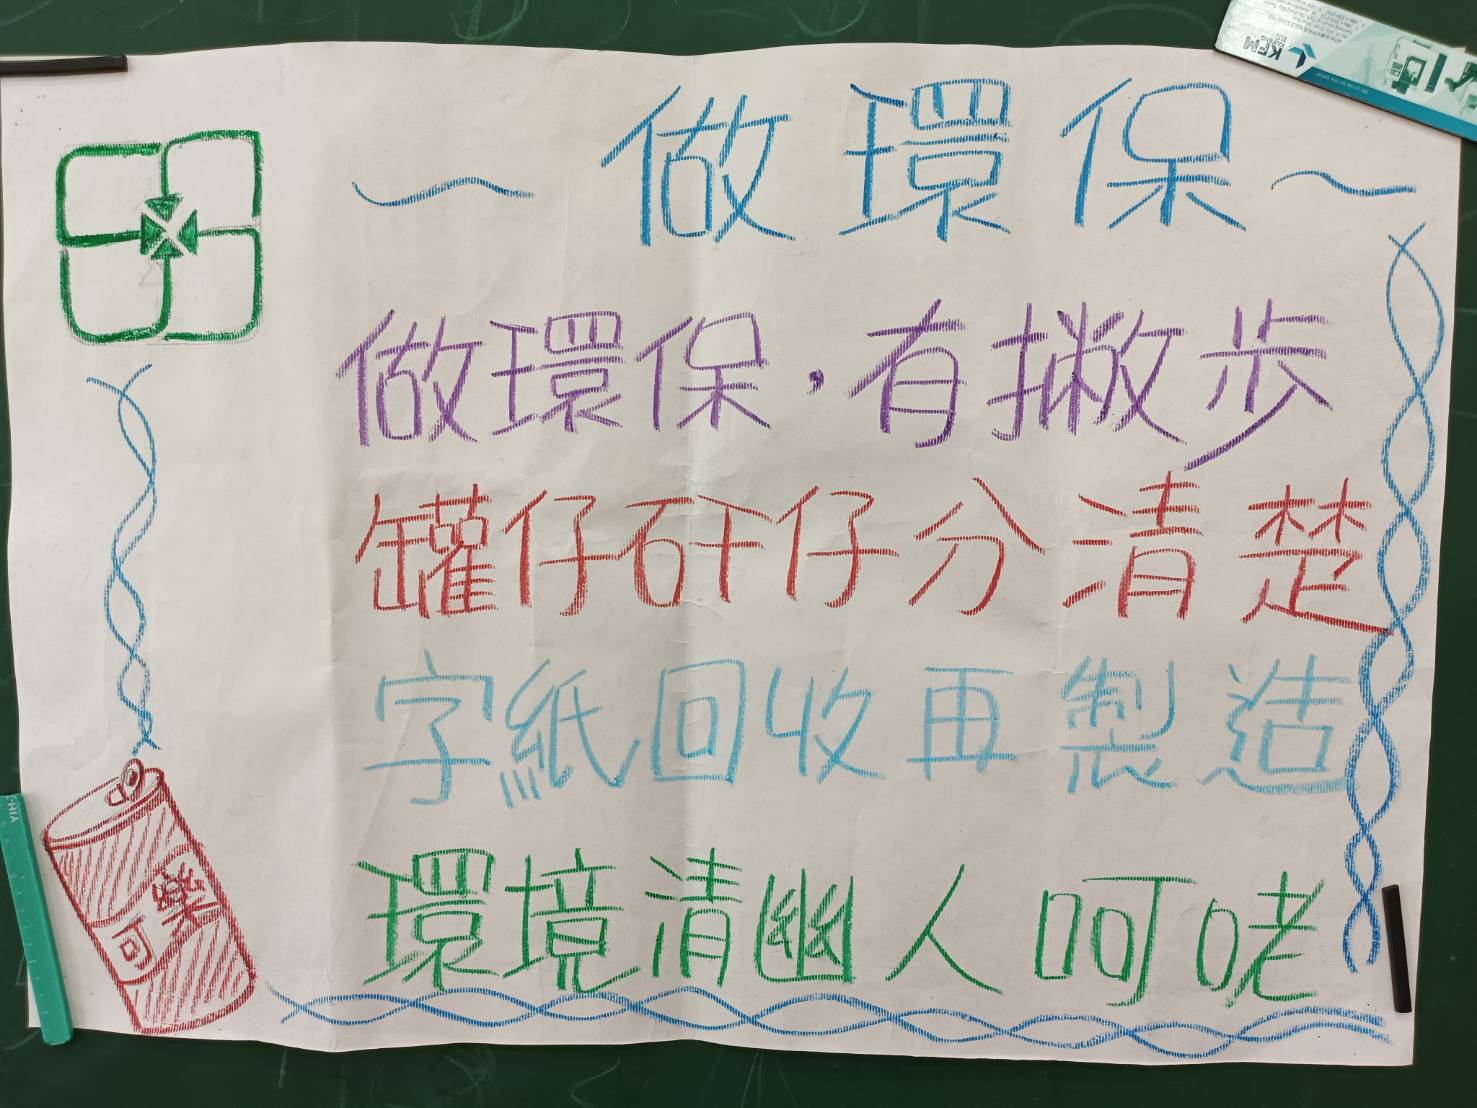 做環保
做環保,有撇步
罐仔矸仔分清楚
字紙回收再製造
環境清幽人呵咾
可樂
KFM